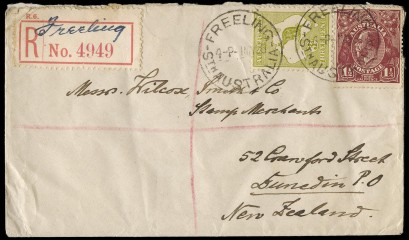 R.6.
Freeling
R No. 4949
FREELING
STH AUSTRALIA
FREELING
STH AUSTRALIA
AUSTRALIA
POSTAGE
1½D
Messrs. Wilcox Smith & Co
Stamp Merchants
52 Crawford Street
Dunedin P.O
New Zealand.